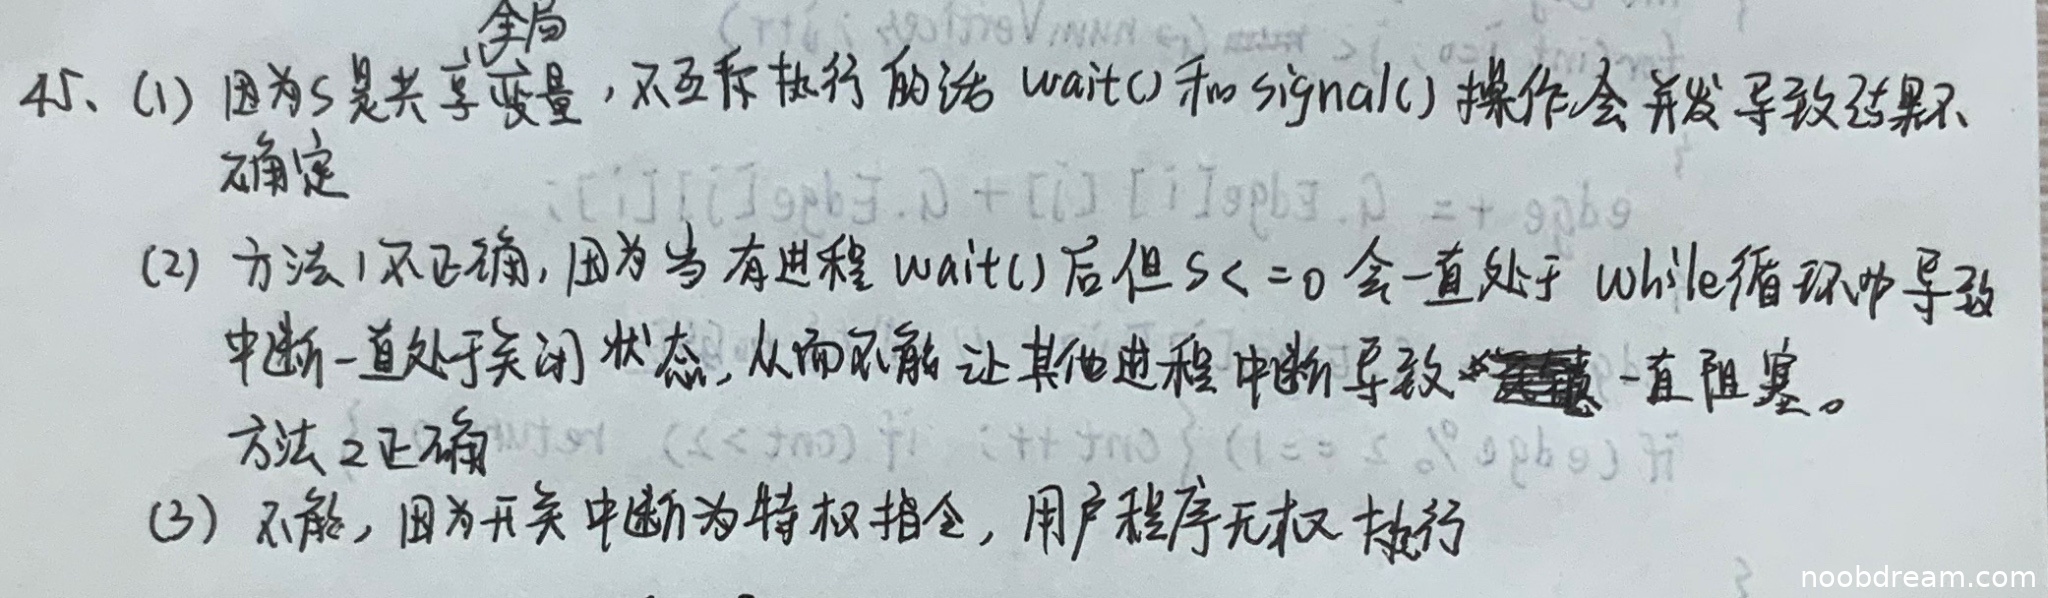 45、(1) 因为S是共享全局变量，不互斥执行的话 wait()和signal()操作会并发导致结果不
确定
(2) 方法1不正确，因为当有进程wait()后但S<=0会一直处于while循环中导致
中断一直处于关闭状态，从而不能让其他进程中断导致 一直阻塞。
方法2正确
(3) 不能，因为开关中断为特权指令，用户程序无权执行
noobdream.com